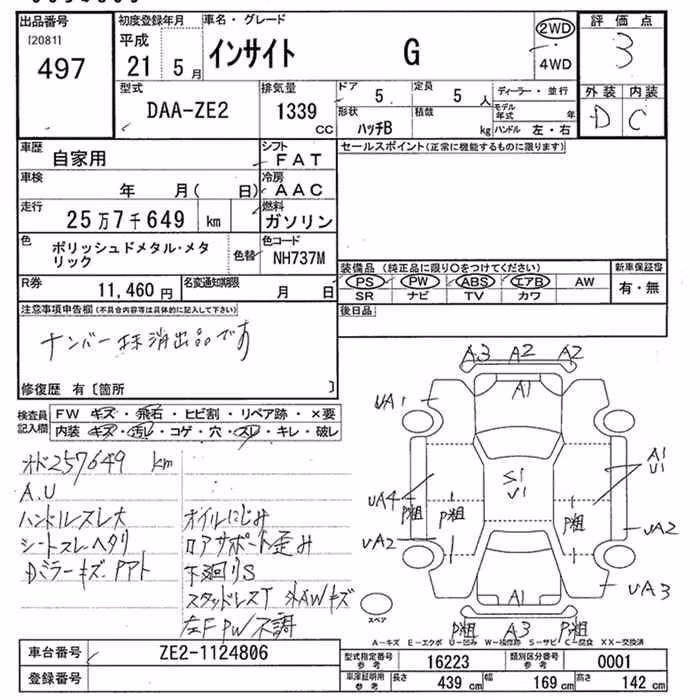 出品番号
[20811
497
初度登録年月
平成
21 5 月
車名・グレード
インサイト G
2WD
4WD
評価点
3
外装 内装
D C
型式
DAA-ZE2
排気量
1339
CC
ドア
5
定員
5 人
ディーラー・並行
モデル年式 年
形状
ハッチB
積載
kg
ハンドル 左・右
車歴
自家用
シフト
FAT
セールスポイント(正常に機能するものに限ります)
車検
年 月( 日)
冷房
AAC
走行
25万7千649 km
燃料
ガソリン
色
ポリッシュドメタル・メタ
リック
色替
色コード
NH737M
装備品 (純正品に限り○をつけてください)
新車保証書
PS PW ABS エアB AW
有・無
SR ナビ TV カワ
R券
11,460 円
名変通知期限
月 日
後日品
注意事項申告欄 (不具合内容等は具体的に記入して下さい)
ナンバー抹消出品です
修復歴 有 〔箇所 〕
検査員
記入欄
FW キズ・飛石・ヒビ割・リペア跡・×要
内装 キズ・汚レ・コゲ・穴・スレ・キレ・破レ
オド257649 km
A.U
ハンドルスレ大
オイルにじみ
シートスレヘタリ
ロアサポート歪み
Dミラーキズ、PPアト
下廻りS
スタッドレスT 外AWキズ
左F PW不調
A3 A2 A2
A1
UA1
A1
U1
S1
V1
UA4
P粗 P粗 P粗
UA2
UA2
A1
UA3
スペア
P粗 A3 P粗
A-キズ E-エクボ U-凹ミ W-補修跡 S-サビ C-腐食 XX-交換済
車台番号
ZE2-1124806
登録番号
型式指定番号
参考
16223
類別区分番号
参考
0001
車庫証明用
参考
長さ
439 cm
幅
169 cm
高さ
142 cm